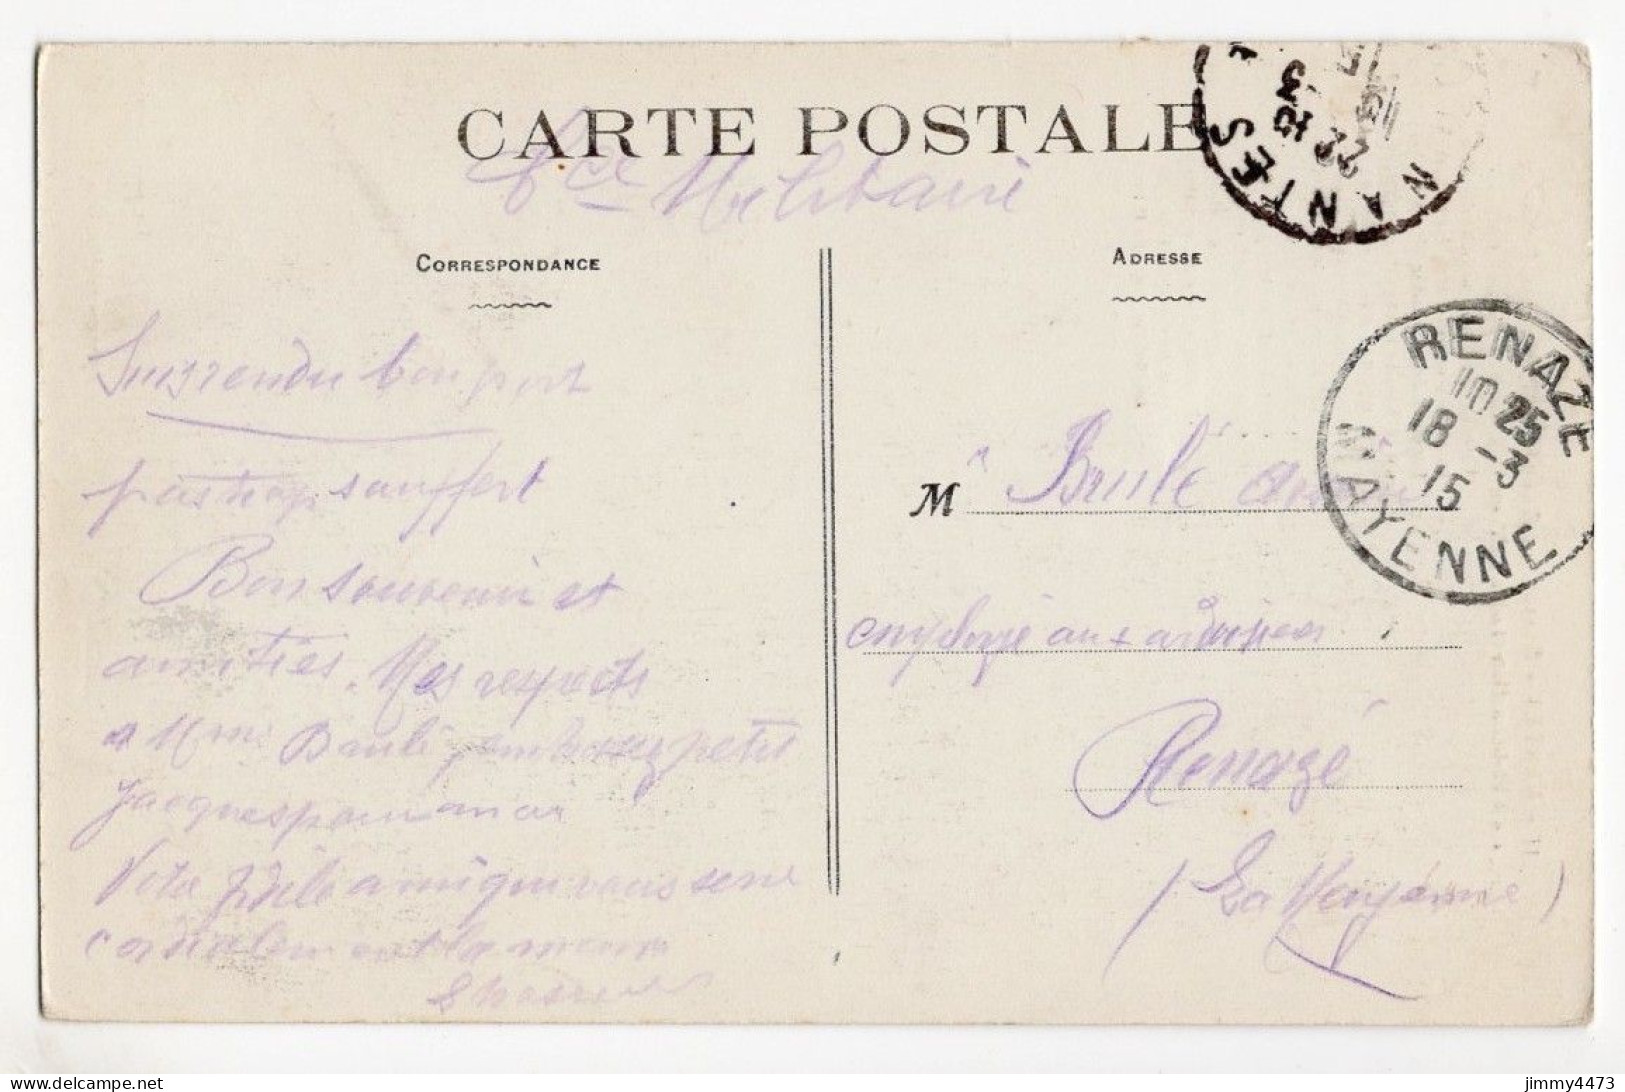 CARTE POSTALE
Militaire
CORRESPONDANCE
ADRESSE
NANTES
RENAZE
10 25
18 -3
15
MAYENNE
Suis rendu bon port
pas trop souffert
Bon souvenir et
amitiés. Mes respects
a Mme Brulé, embrassez petit
Jacques pour moi
Votre fidèle ami qui vous serre
cordialement la main
M r Brulé
employé aux ardoisières
Renazé
(La Mayenne)
jimmy4473